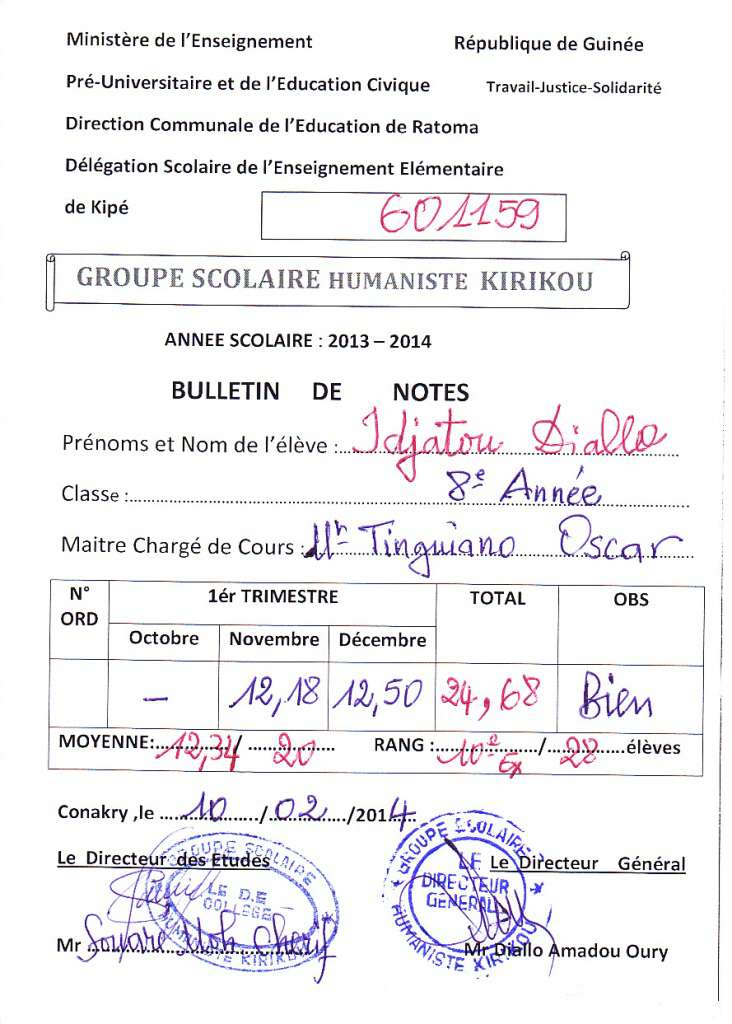 Ministère de l'Enseignement République de Guinée
Pré-Universitaire et de l'Education Civique Travail-Justice-Solidarité
Direction Communale de l'Education de Ratoma
Délégation Scolaire de l'Enseignement Elémentaire
de Kipé 601159
GROUPE SCOLAIRE HUMANISTE KIRIKOU
ANNEE SCOLAIRE : 2013 – 2014
BULLETIN DE NOTES
Prénoms et Nom de l'élève : Idjatou Diallo
Classe : 8e Année
Maitre Chargé de Cours : Mr Tinguiano Oscar
N° ORD 1ér TRIMESTRE TOTAL OBS
Octobre Novembre Décembre
– 12,18 12,50 24,68 Bien
MOYENNE: 12,34 / 20 RANG : 10e ex / 28 élèves
Conakry ,le 10 / 02 /2014
Le Directeur des Etudes Le Directeur Général
GROUPE SCOLAIRE
LE D.E
COLLEGE
HUMANISTE KIRIKOU
GROUPE SCOLAIRE
LE
DIRECTEUR
GENERAL
HUMANISTE KIRIKOU
Mr Soware Moh Cherif Mr Diallo Amadou Oury